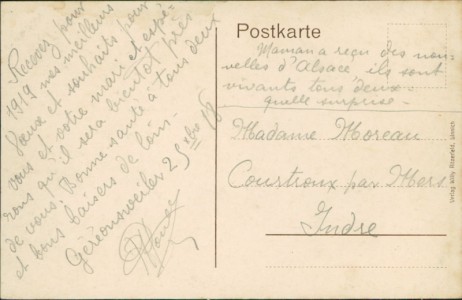 Recevez pour
1919 mes meilleurs
voeux et souhaits pour
vous et votre mari et espé-
rons qu'il sera bientôt près
de vous. Bonne santé à tous deux
et bons baisers de loin.
Géreonsweiler 25 xbre 18
Postkarte
Maman a reçu des nou-
velles d'Alsace ils sont
vivants tous deux.
quelle surprise -
Madame Moreau
Coustroux par Mers
Indre
Verlag Willy